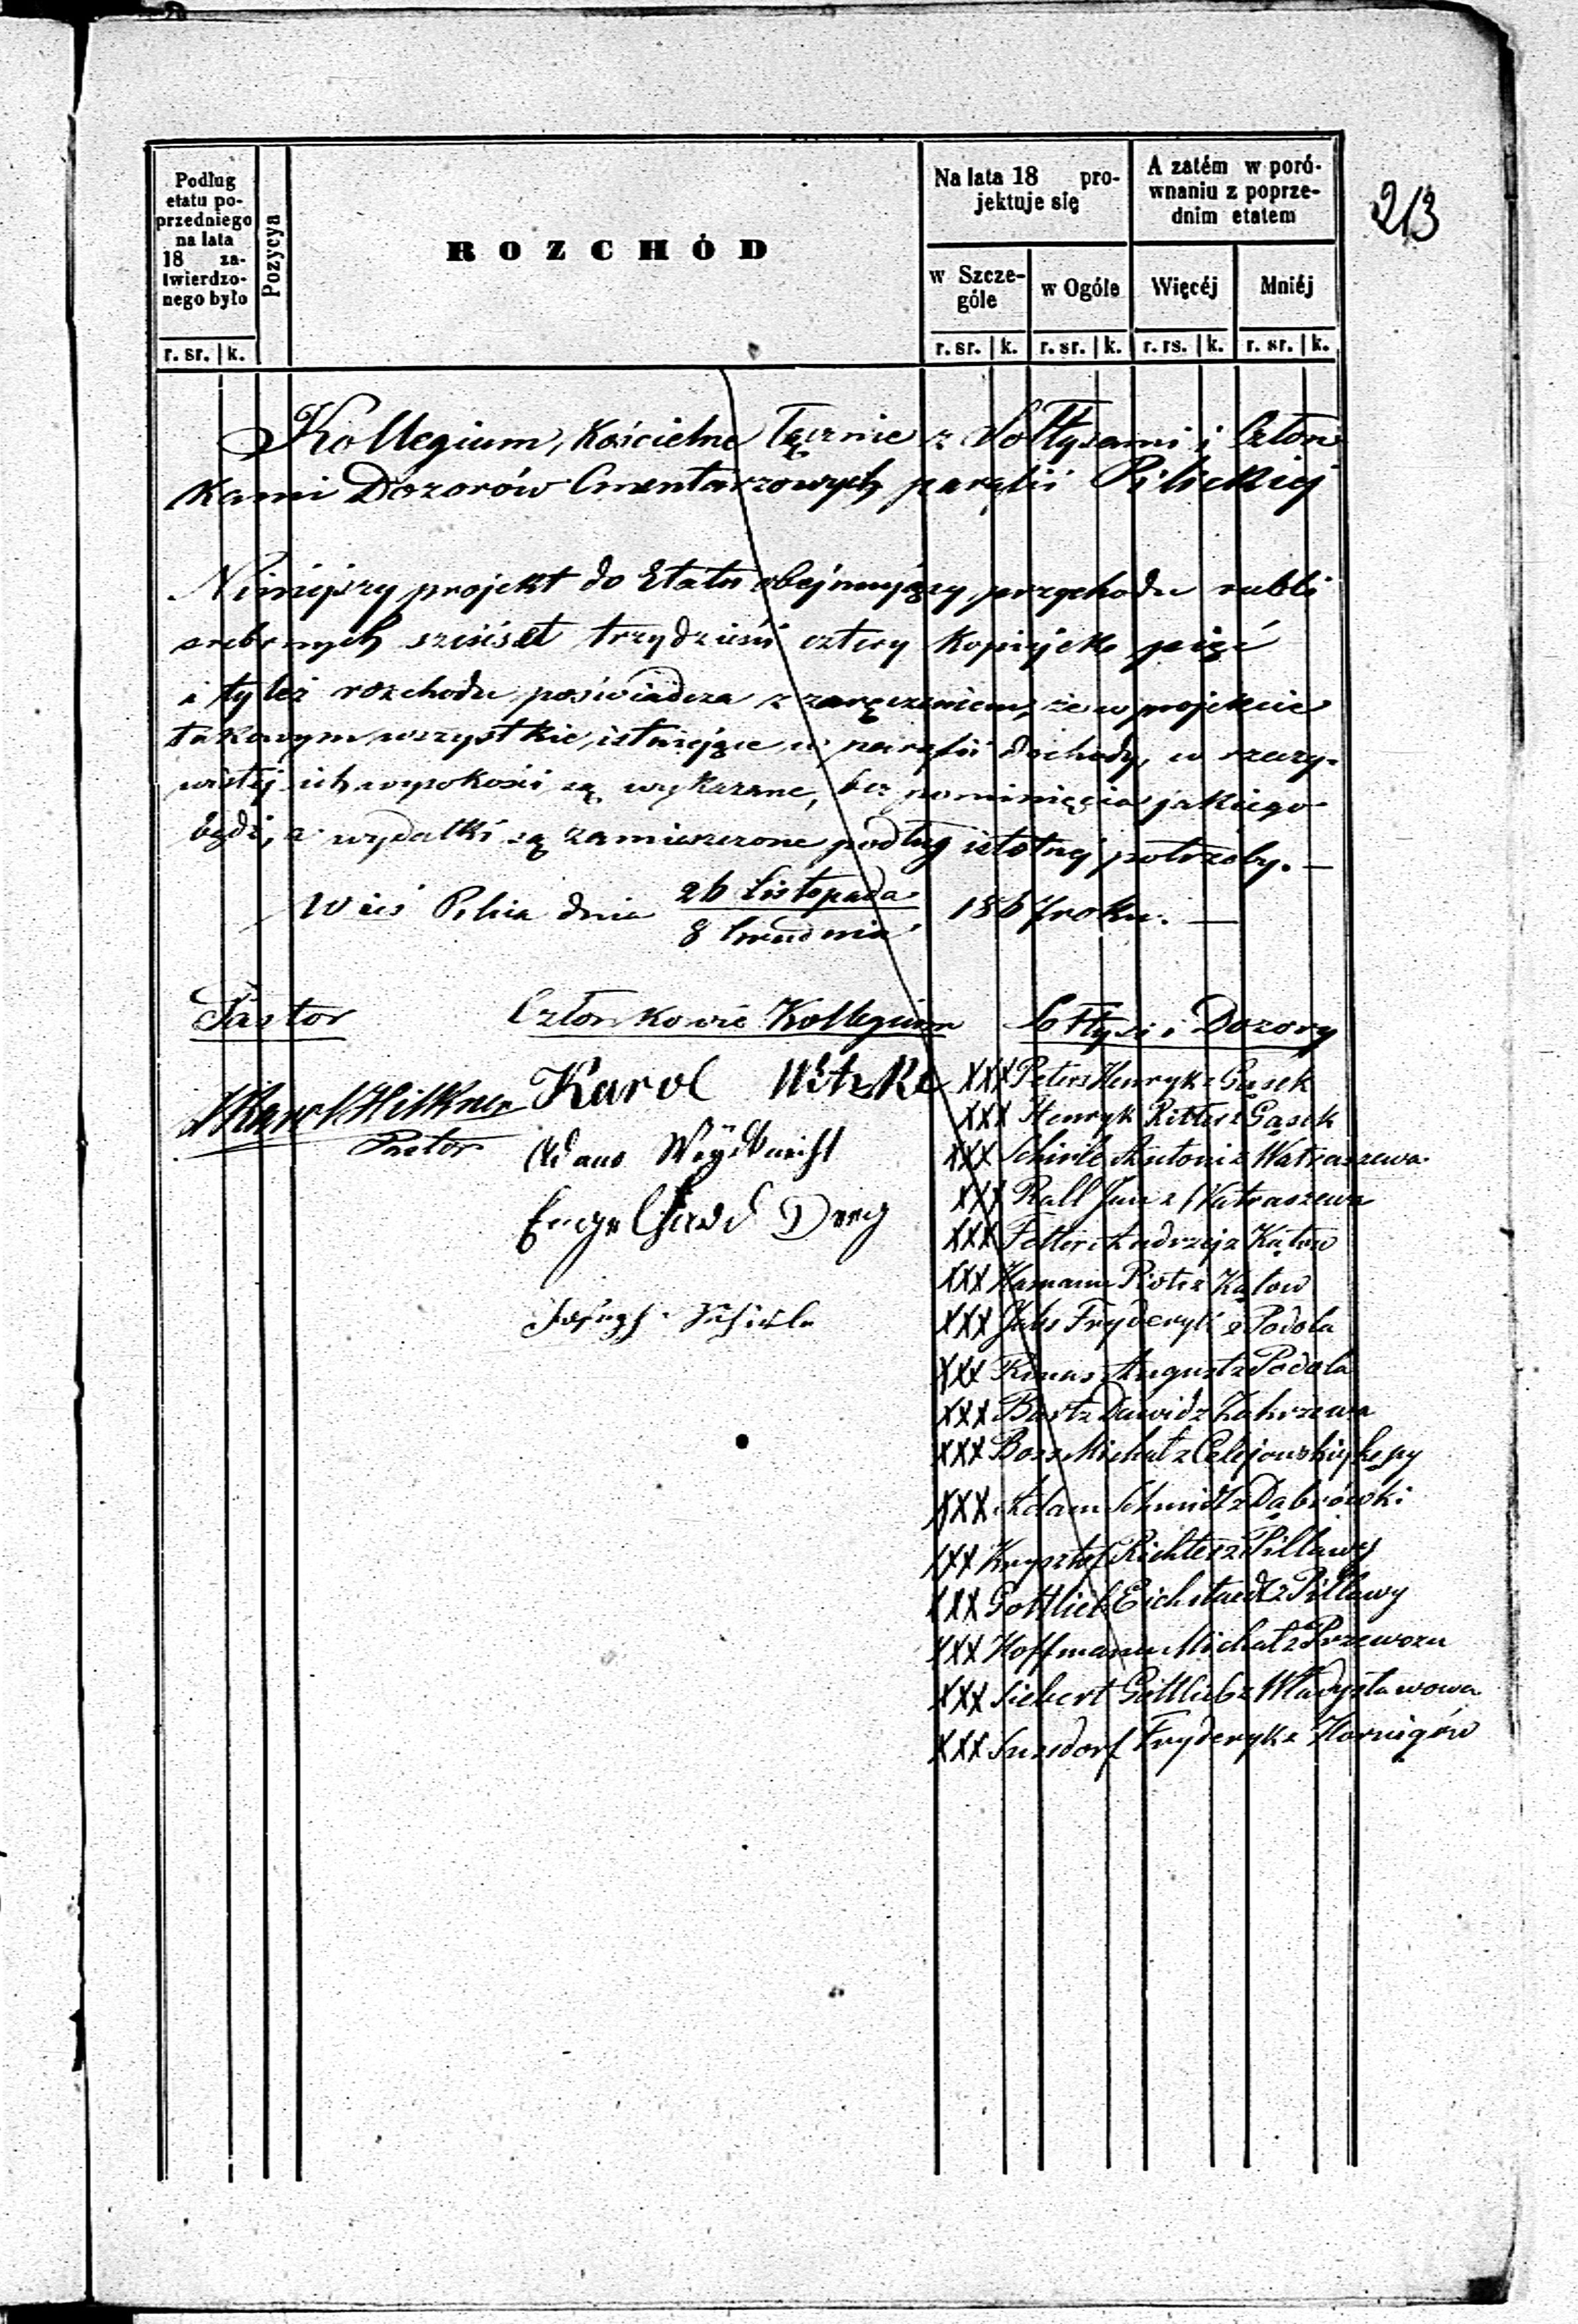 213
Podług
etatu po-
przedniego
na lata
18 za-
twierdzo-
nego było
Pozycya
ROZCHÓD
Na lata 18 pro-
jektuje się
A zatém w poró-
wnaniu z poprze-
dnim etatem
w Szcze-
góle
w Ogóle
Więcéj
Mniéj
r. sr. k.
r. sr. k. r. sr. k. r. rs. k. r. sr. k.
Kollegium, Kościelne Łącznie z Sołtysami i Człon
kami Dozorów Cmentarzowych parafii Pilickiej
Niniejszy projekt do Etatu obejmujący przychodu rubli
srebrnych sześćset trzydzieści cztery kopiejek pięć
i tyleż rozchodu poświadcza z zaręczeniem, że w projekcie
takowym wszystkie, istniejące w parafii dochody, w rzeczy-
wistéj ich wysokości są wykazane, bez pominięcia jakiego-
bądź, a wydatki są zamieszczone podług istotnej potrzeby. —
Wieś Pilica dnia 26 Listopada
8 Grudnia 1867 roku. —
Pastor
Członkowie Kollegium
Sołtysi i Dozory
Pastor
Karol Witzke
Adam Weydknecht
Engelhard Derg
Joseph Schiele
XXX Peters Henryk z Gąsek
XXX Henryk Ritter z Gąsek
XXX Schiele Antoni z Watraszewa
XXX Rall Jan z Watraszewa
XXX Fetter Andrzej z Kątów
XXX Hamann Piotr z Kątow
XXX Jabs Fryderyk z Podola
XXX Remus August z Podola
XXX Bartz Dawid z Zakrzewa
XXX Boss Michał z Celejowskiej kępy
XXX Adam Schmidt z Dąbrówki
XXX Krysztof Richter z Pilławy
XXX Gottlieb Eichstaedt z Pilławy
XXX Hoffmann Michał z Przewozu
XXX Siebert Gottlieb z Władysławowa
XXX Fryderyk z Hornigów